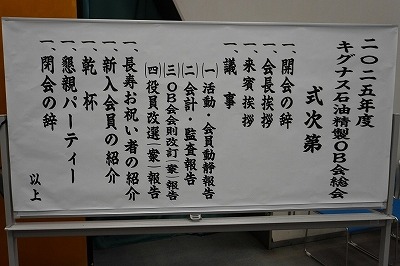 二〇二五年度
キグナス石油精製OB会総会
式次第
一、開会の辞
一、会長挨拶
一、来賓挨拶
一、議事
(一)活動・会員動静報告
(二)会計・監査報告
(三)OB会会則改訂(案)報告
(四)役員改選(案)報告
一、長寿お祝い者の紹介
一、新入会員の紹介
一、乾杯
一、懇親パーティー
一、閉会の辞
以上